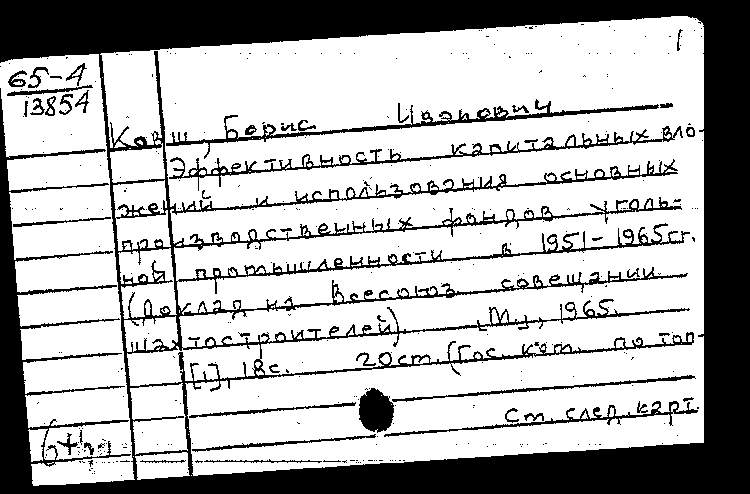 1
65-4
13854
Ковш, Борис Иванович.
Эффективность капитальных вло-
жений и использования основных
производственных фондов уголь-
ной промышленности в 1951-1965гг.
(Доклад на Всесоюз совещании
шахтостроителей). М., 1965.
[1], 18с. 20см. (Гос. ком. по топ-
См. след. карт.